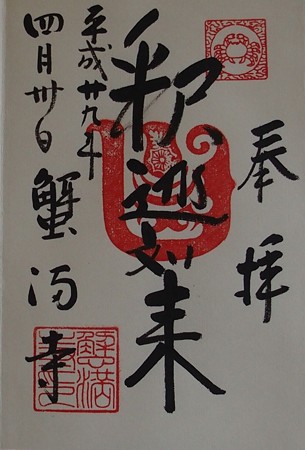 奉拝
釈迦如来
平成廿九年
四月卅日
蟹満寺